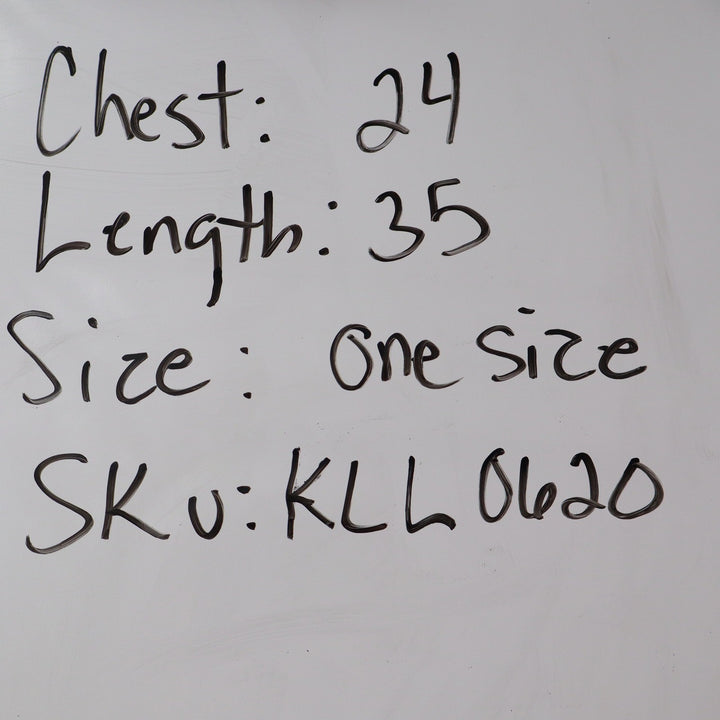 Chest: 24
Length: 35
Size: One Size
SKU: KLL0620